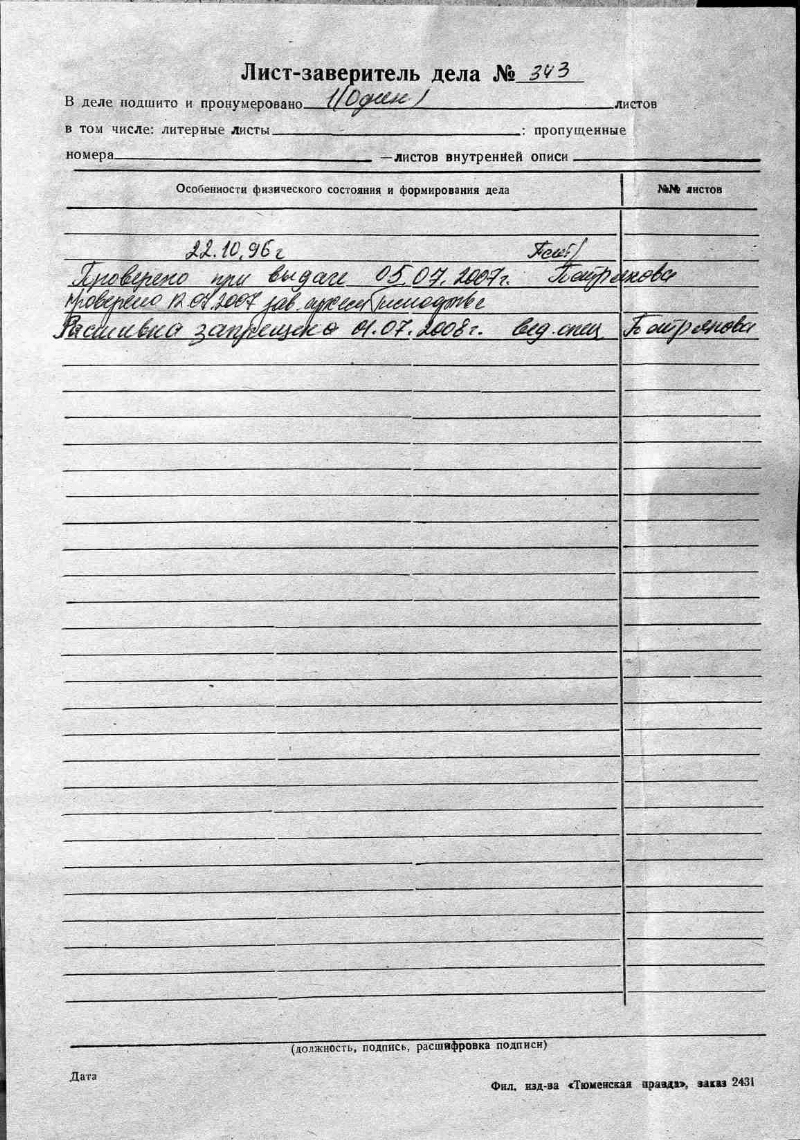 Лист-заверитель дела № 343
В деле подшито и пронумеровано 1(Один) листов
в том числе: литерные листы : пропущенные
номера —листов внутренней описи
Особенности физического состояния и формирования дела №№ листов
22.10.96г
Проверено при выдаче 05.07.2007г.
проверено 12.07.2007 зав.
Расшивка запрещена 01.07.2008г. вед. спец
(должность, подпись, расшифровка подписи)
Дата
Фил. изд-ва «Тюменская правда», заказ 2431